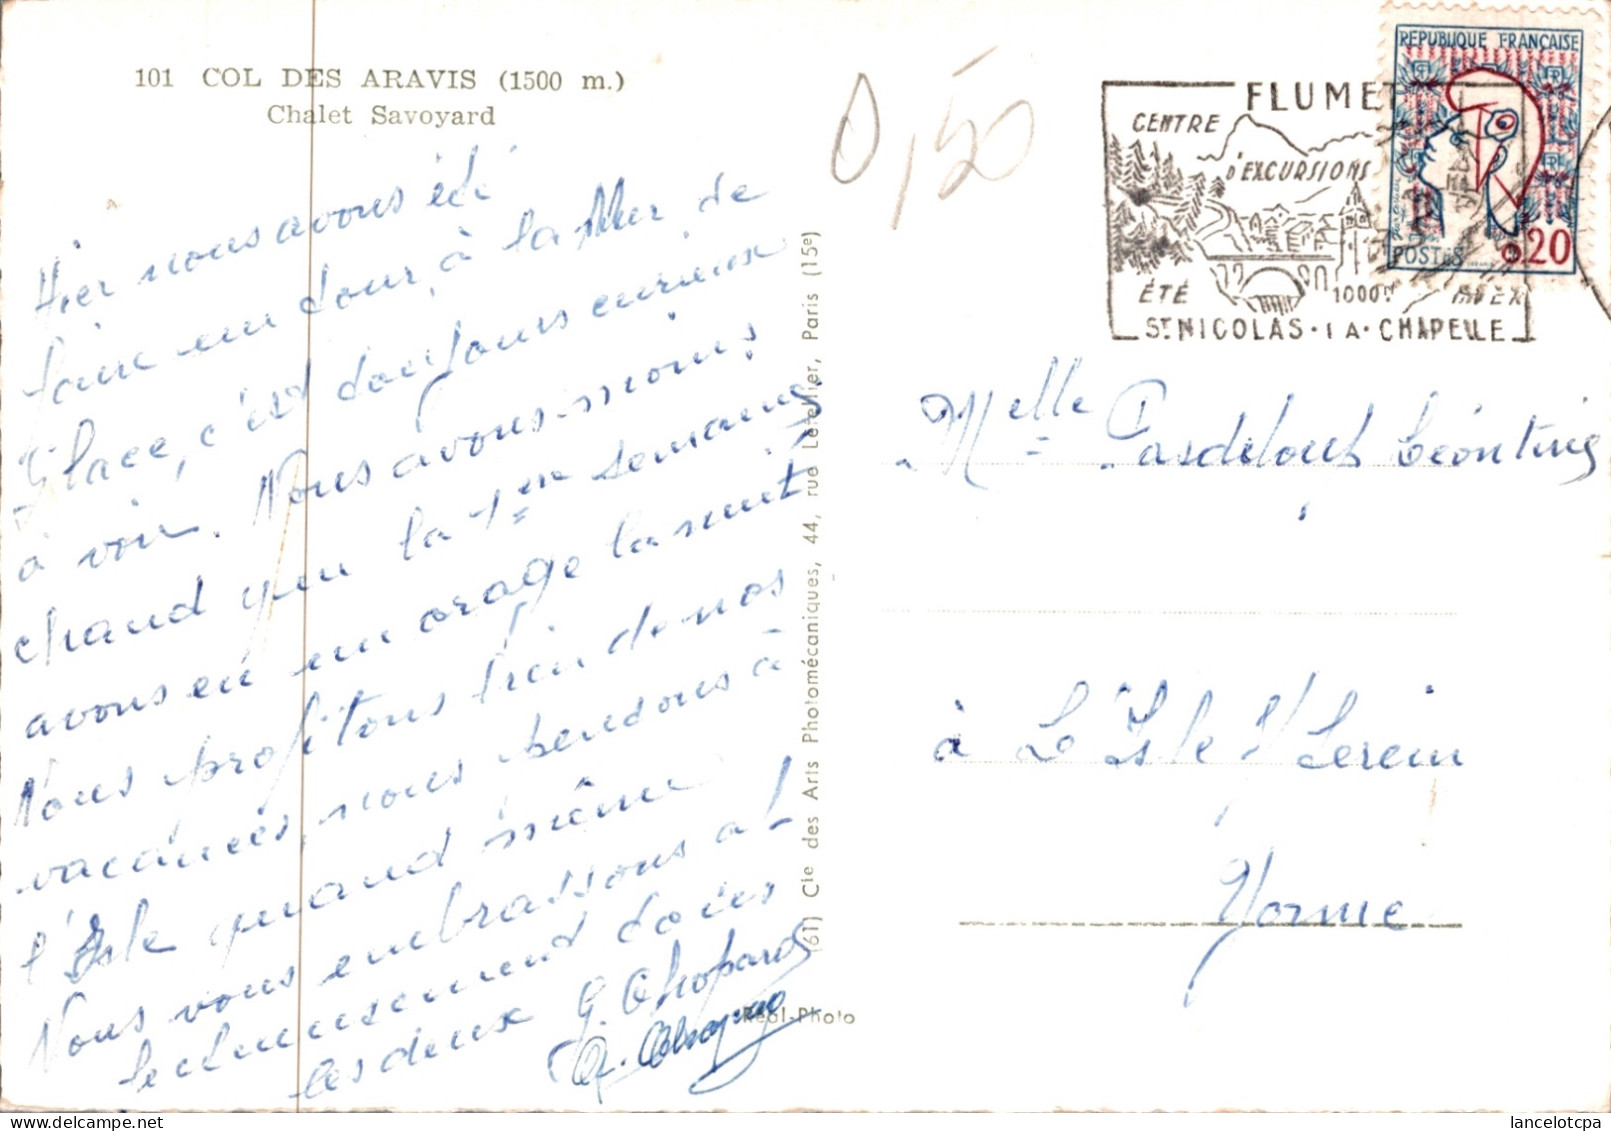 101 COL DES ARAVIS (1500 m.)
Chalet Savoyard
0,50
Hier nous avons été
faire un tour, à la Mer de
Glace, c'est toujours curieux
à voir. Nous avons moins
chaud qu'en la 1ère semaine,
avons eu un orage la nuit
Nous profitons bien de nos
vacances, nous pensons à
l'Isle quand même
Nous vous embrassons
les deux G. Chopard
(61) Cie des Arts Photomécaniques, 44, rue Letellier, Paris (15e)
Réal-Photo
FLUMET
CENTRE
D'EXCURSIONS
ÉTÉ 1000m HIVER
ST NICOLAS-LA-CHAPELLE
REPUBLIQUE FRANÇAISE
RF
POSTES
0.20
Melle Pasdeloup Léontine
à L'Isle s/ Serein
Yonne
lancelotcpa